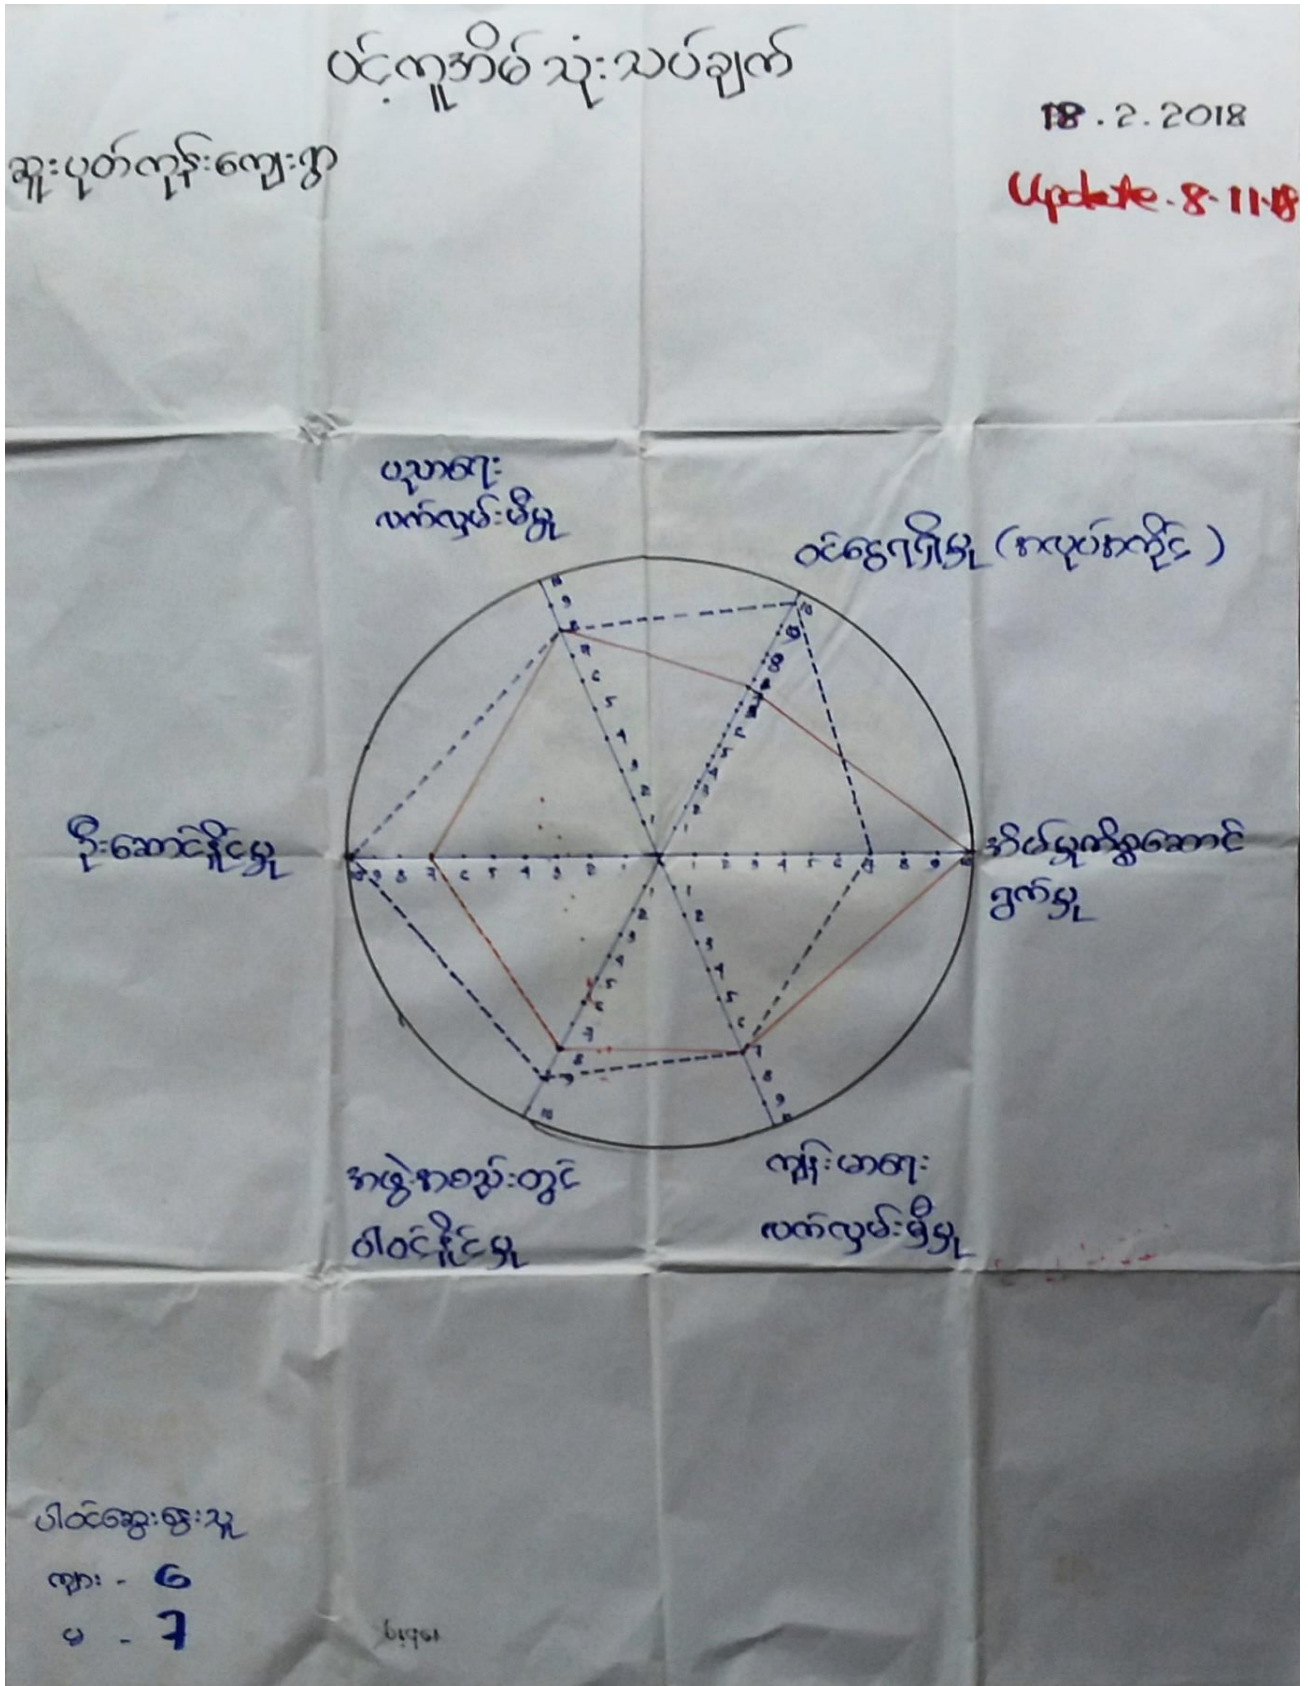 ပင့်ကူအိမ်သုံးသပ်ချက်
18.2.2018
ဆူးပုတ်ကုန်းကျေးရွာ
Update. 8-11-18
ပညာရေး
လက်လှမ်းမီမှု
ဝင်ငွေရရှိမှု (အလုပ်အကိုင်)
ဦးဆောင်နိုင်မှု
အိမ်မှုကိစ္စဆောင်
ရွက်မှု
အဖွဲ့အစည်းတွင်
ပါဝင်နိုင်မှု
ကျန်းမာရေး
လက်လှမ်းမှီမှု
ပါဝင်ဆွေးနွေးသူ
ကျား - 6
မ - 7